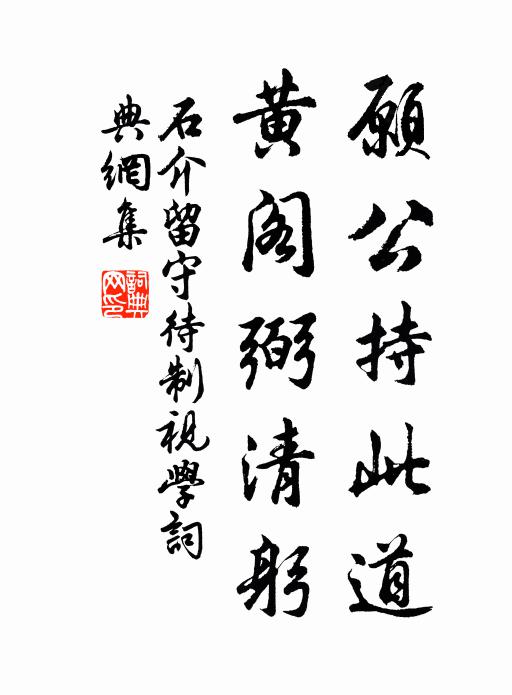 願公持此道
黃阁弼清躬
石介留守待制視學詞
典網集
詞典網印